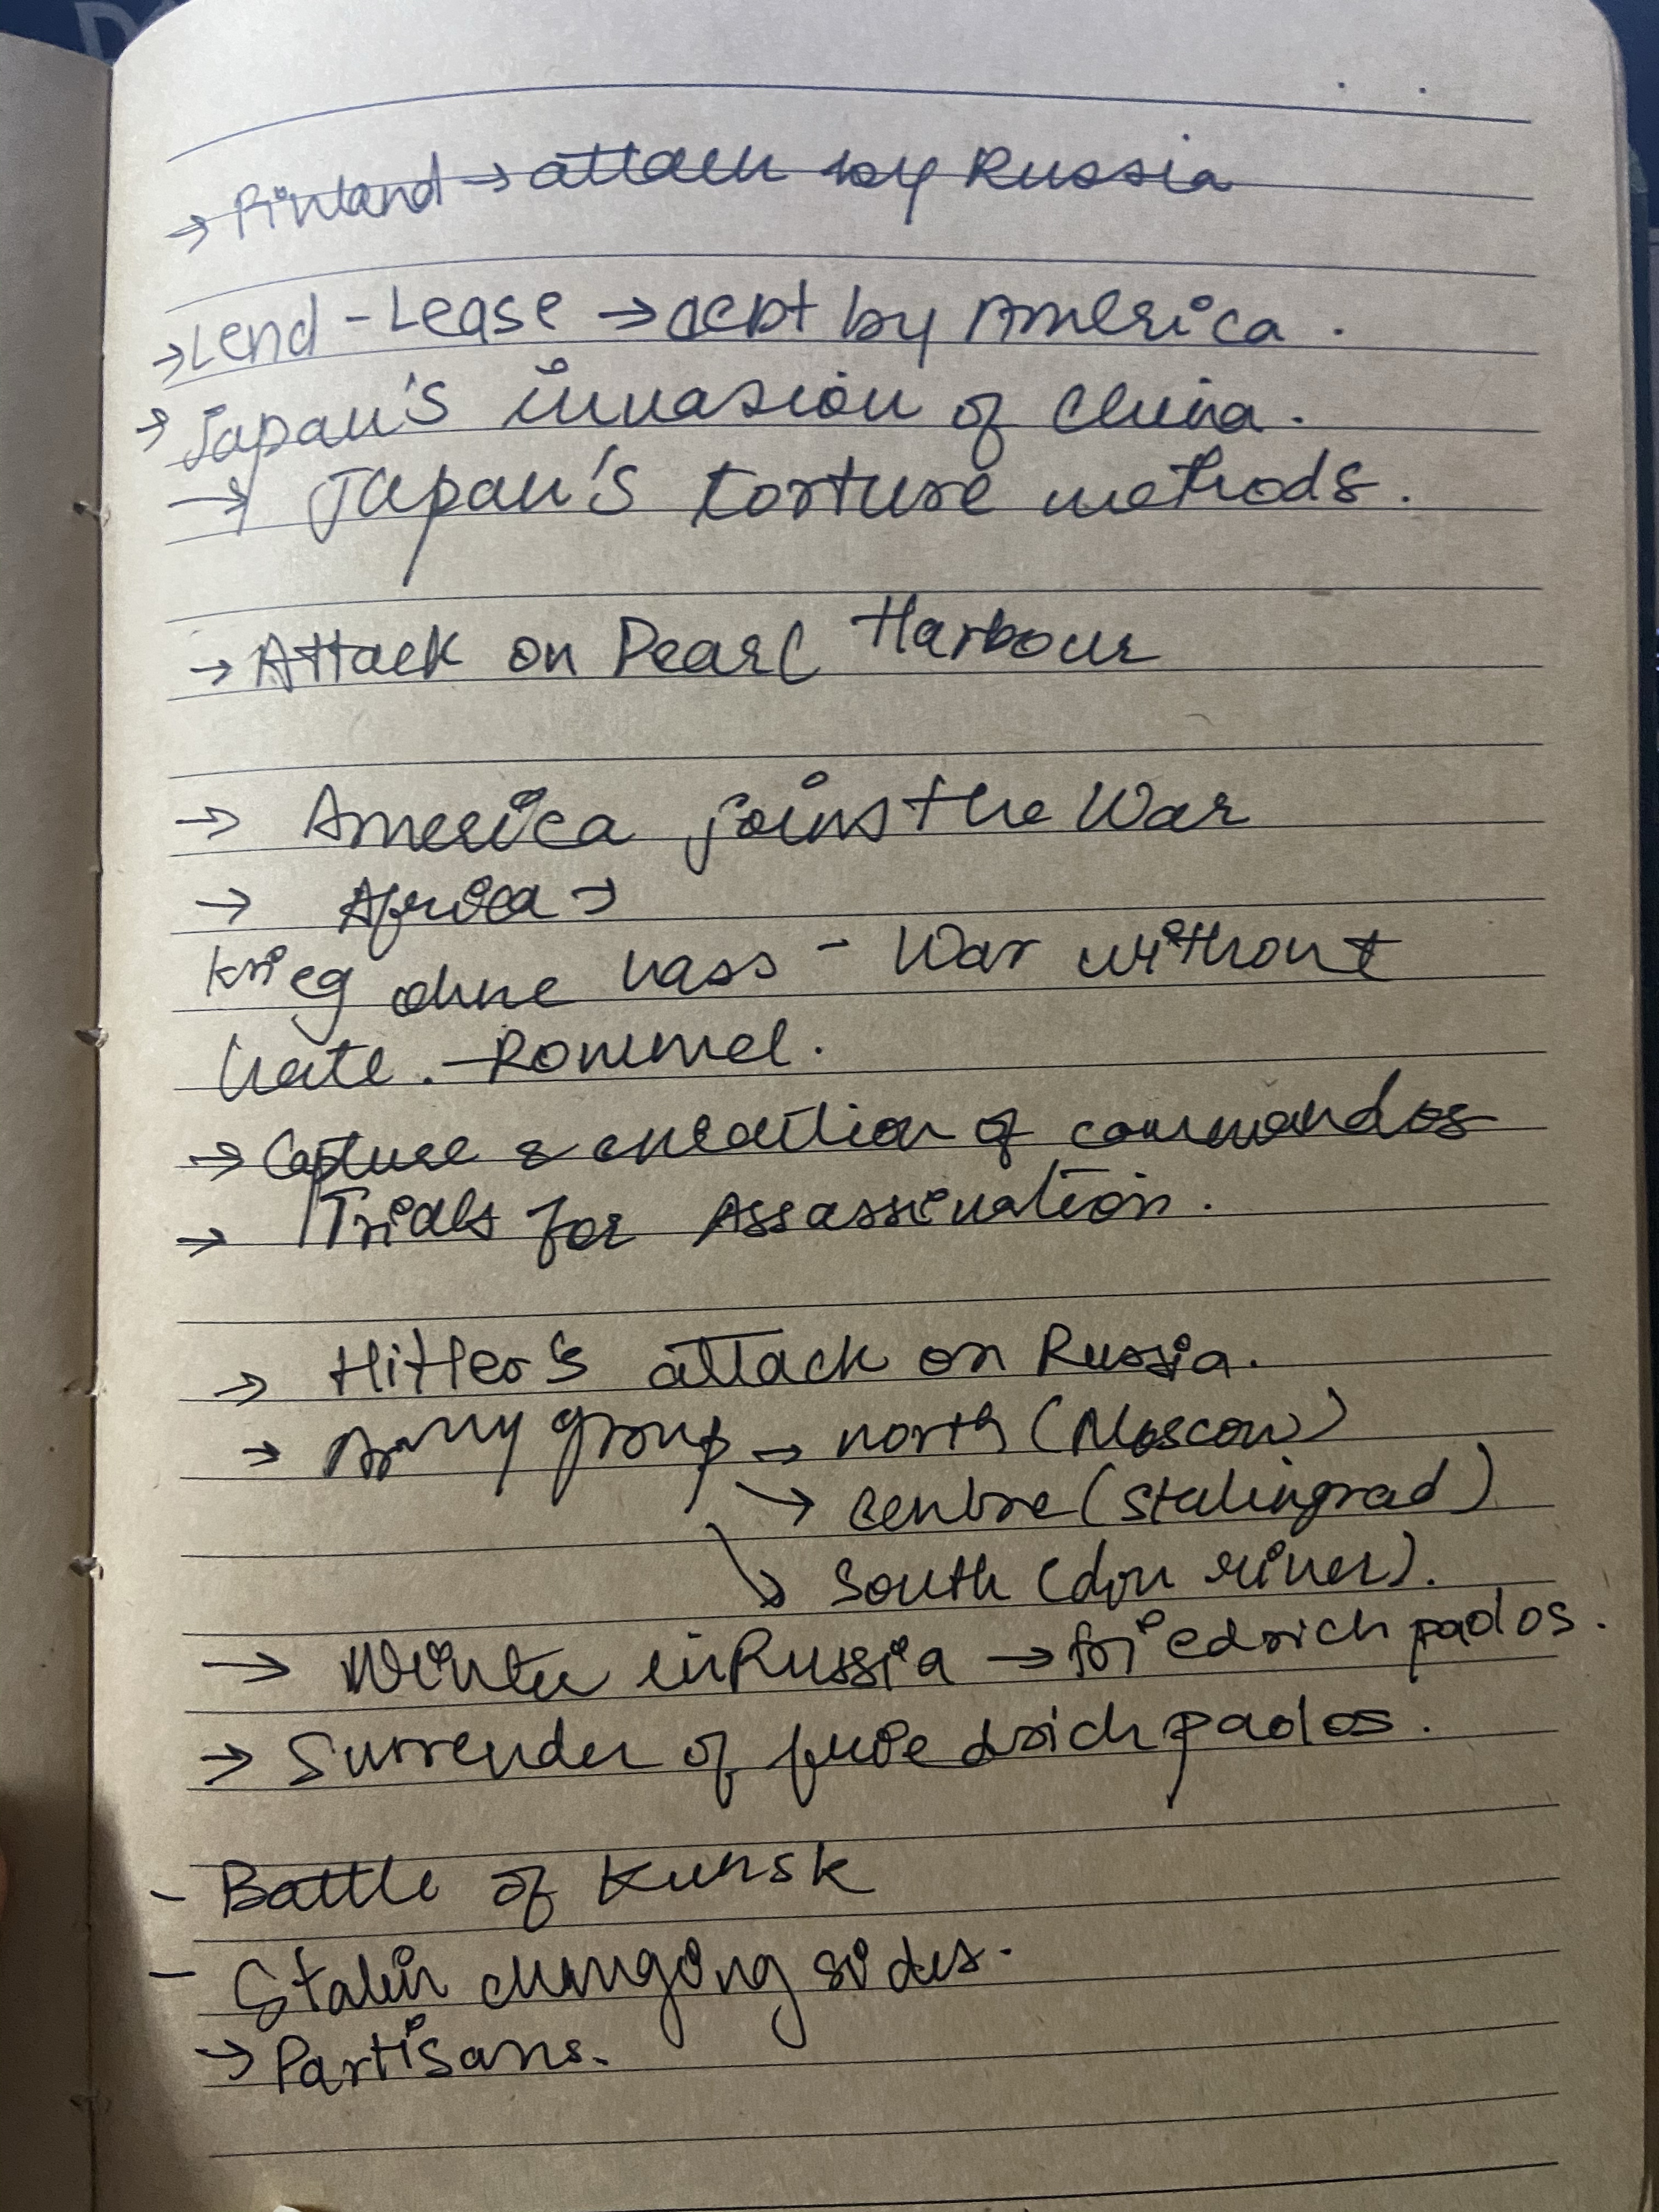 → Finland → attack by Russia
→ Lend - Lease → act by America.
→ Japan's invasion of China.
→ Japan's torture methods.
→ Attack on Pearl Harbour
→ America joins the War
→ Africa →
Krieg ohne hass - War without
hate. - Rommel.
→ Capture & execution of commandos
→ Trials for Assassination.
→ Hitler's attack on Russia.
→ Army group → north (Moscow)
→ centre (Stalingrad)
↘ South (don river).
→ Winter in Russia → friedrich pados.
→ Surrender of friedrich pados.
- Battle of Kursk
- Stalin changing sides.
→ Partisans.